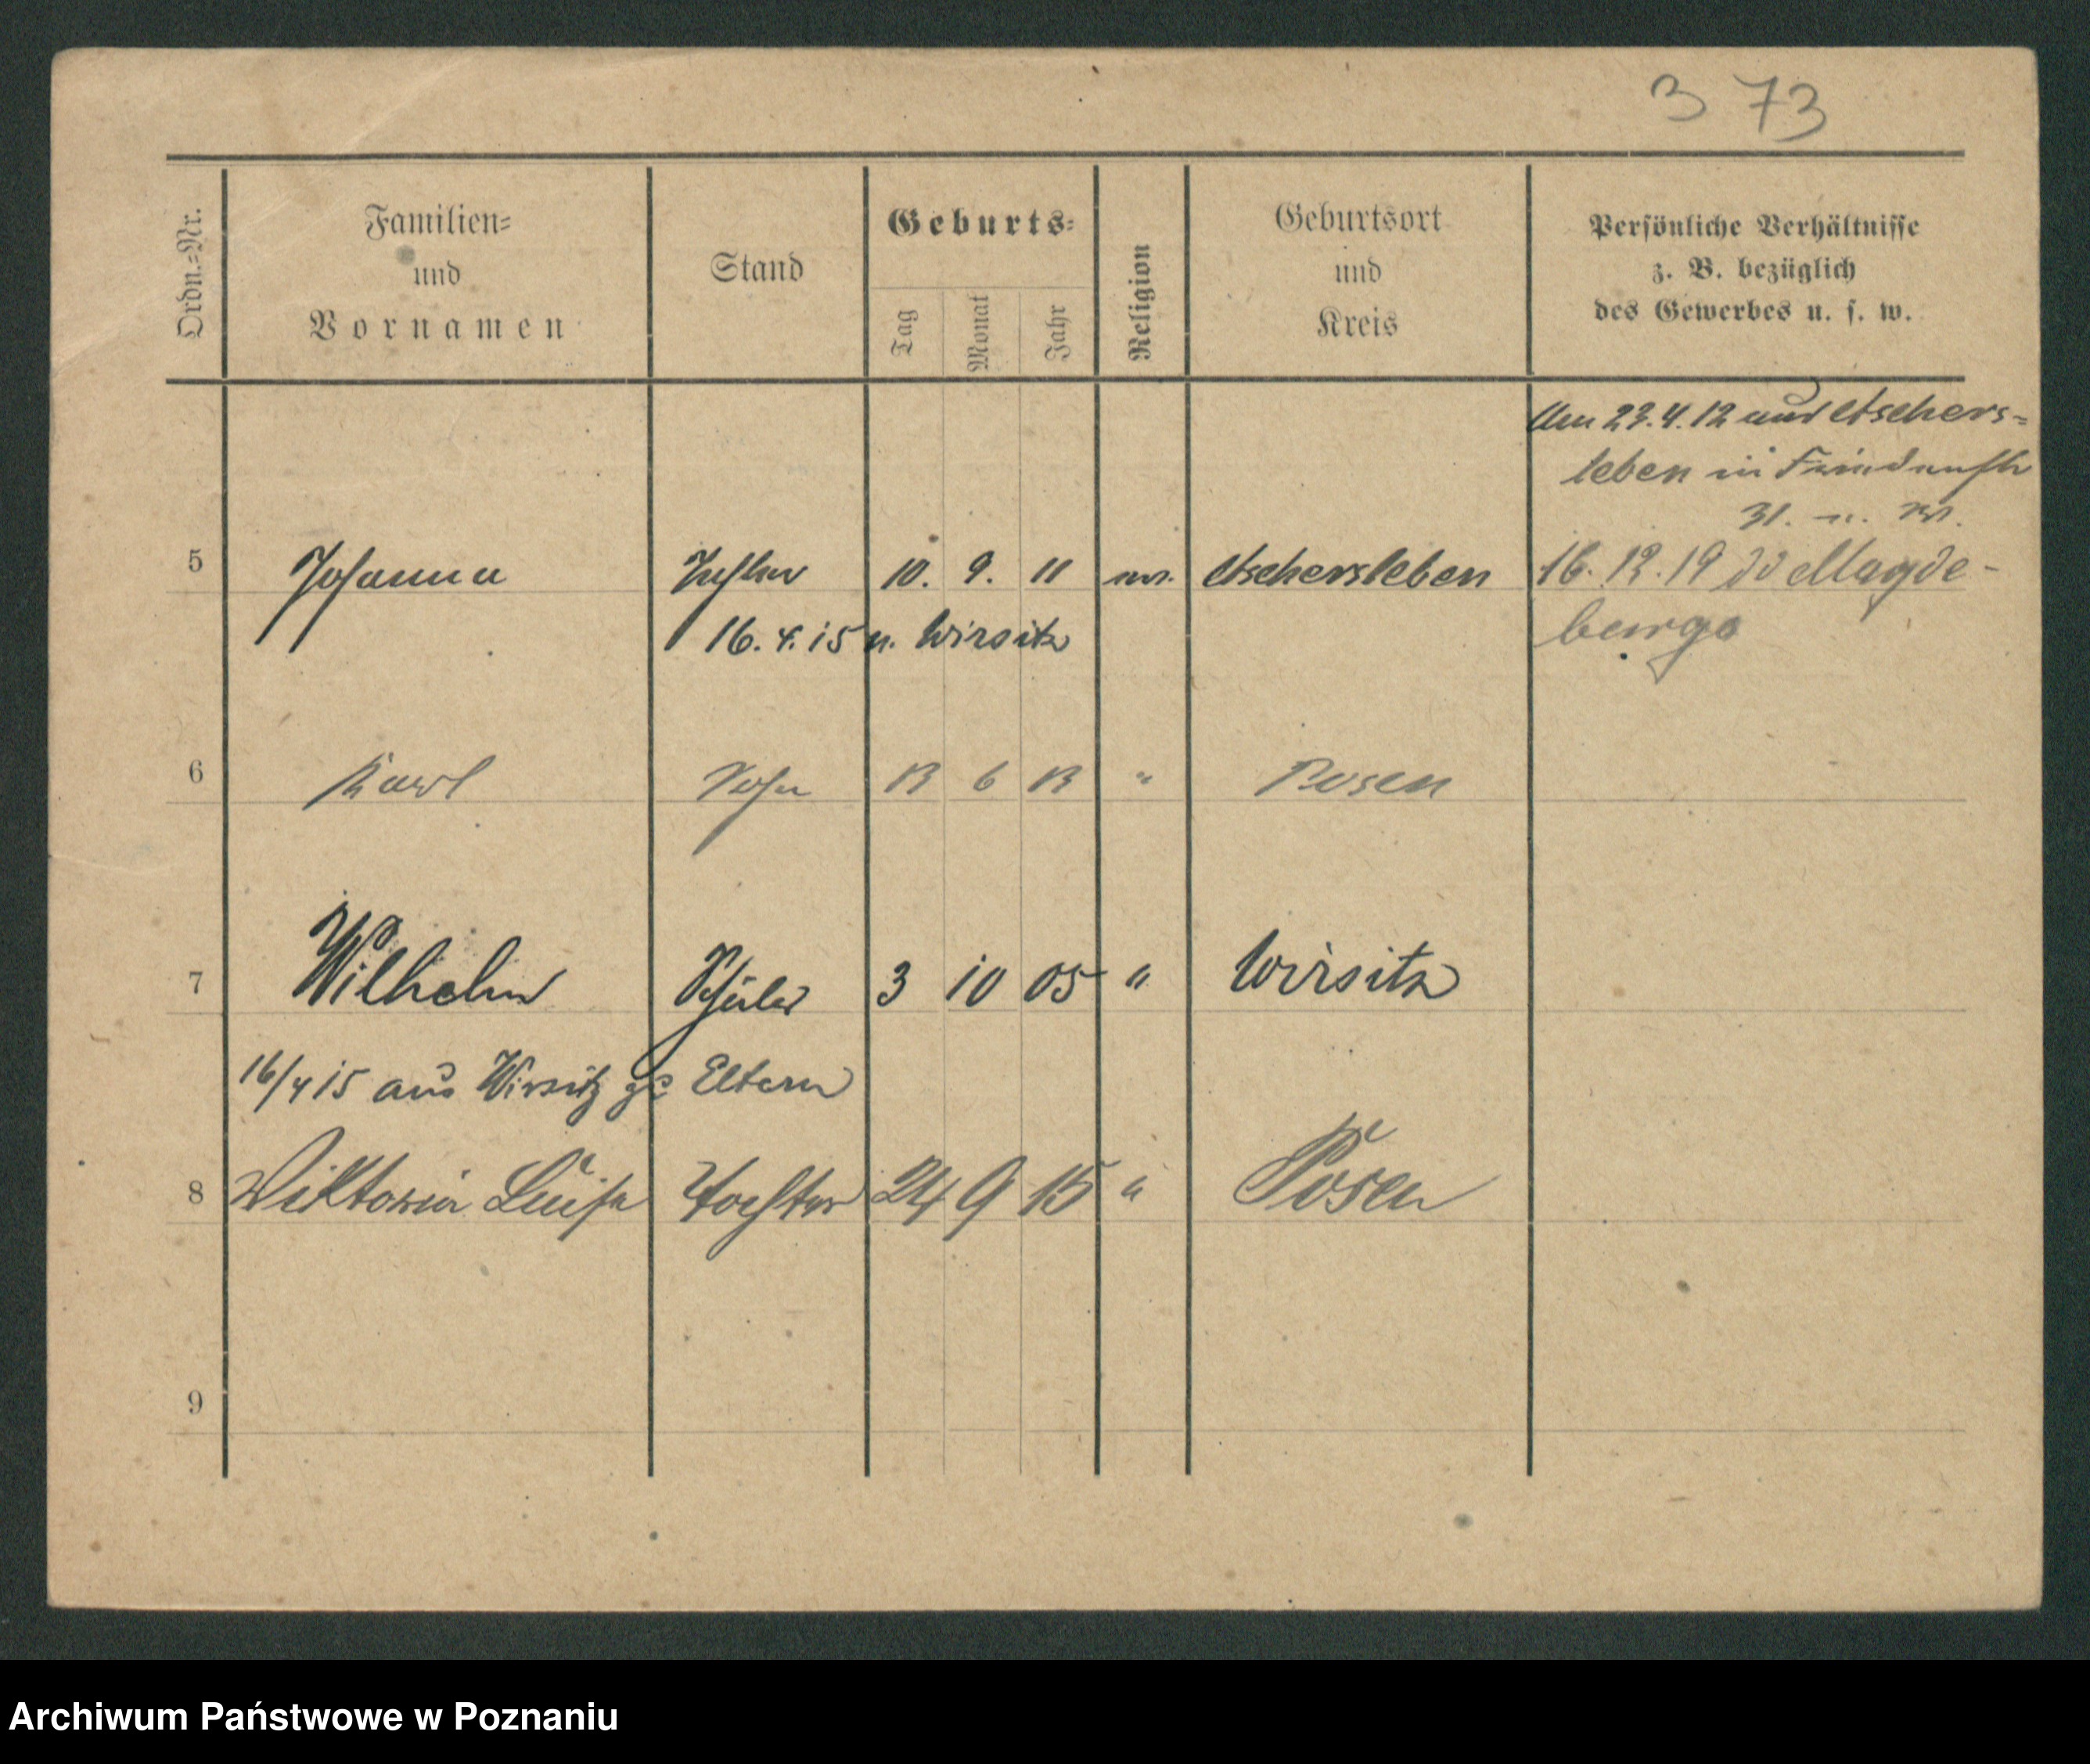 3 73
Ordn.=Nr.
Familien=
und
Vornamen
Stand
Geburts=
Tag Monat Jahr
Religion
Geburtsort
und
Kreis
Persönliche Verhältnisse
z. B. bezüglich
des Gewerbes u. s. w.
Am 23.4.12 aus Aschers=
leben in
5 Johanna Tochter 10. 9. 11 Aschersleben 16. 12. 19 Magde-
16. 4. 15 n. Wirsitz
burg
6 Karl Sohn 13 6 13 " Posen
7 Wilhelm Schüler 3 10 05 " Wirsitz
16/4 15 aus Wirsitz zu Eltern
8 Viktoria Luise Tochter 24 9 15 " Posen
9
Archiwum Państwowe w Poznaniu